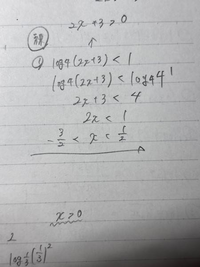 2x+3>0
↑
解
① log4(2x+3) < 1
log4(2x+3) < log4 4¹
2x+3 < 4
2x < 1
-3/2 < x < 1/2
x>0
2
log 1/3 (1/3)²